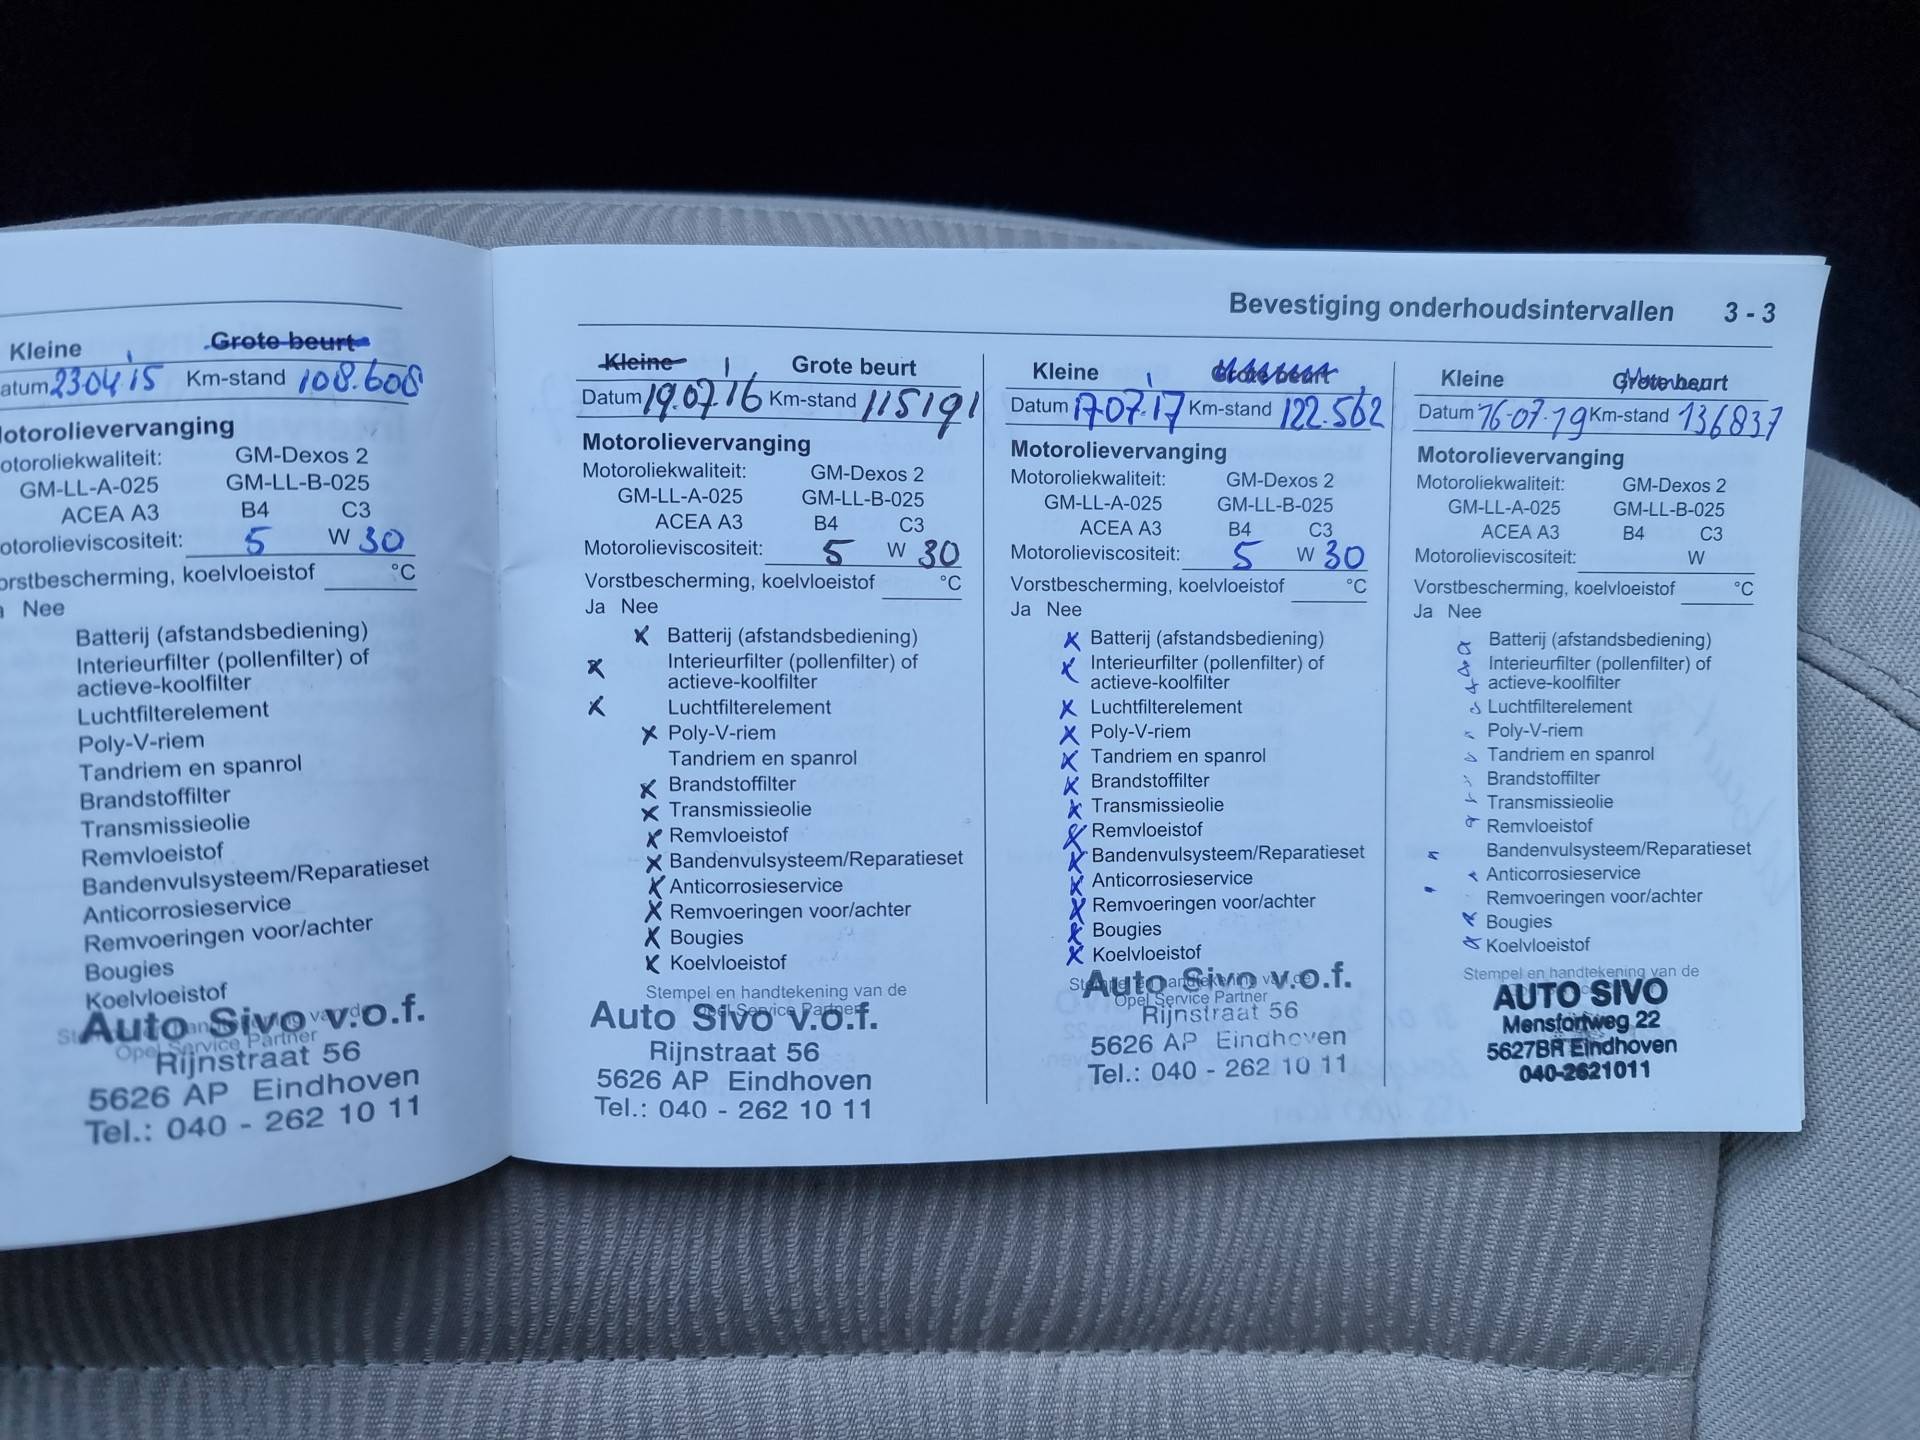 Bevestiging onderhoudsintervallen 3 - 3
Kleine Grote beurt
atum 23 04 15 Km-stand 108.608
otorolievervanging
otoroliekwaliteit: GM-Dexos 2
GM-LL-A-025 GM-LL-B-025
ACEA A3 B4 C3
otorolieviscositeit: 5 W 30
orstbescherming, koelvloeistof °C
a Nee
Batterij (afstandsbediening)
Interieurfilter (pollenfilter) of
actieve-koolfilter
Luchtfilterelement
Poly-V-riem
Tandriem en spanrol
Brandstoffilter
Transmissieolie
Remvloeistof
Bandenvulsysteem/Reparatieset
Anticorrosieservice
Remvoeringen voor/achter
Bougies
Koelvloeistof
Opel Service Partner
Auto Sivo v.o.f.
Rijnstraat 56
5626 AP Eindhoven
Tel.: 040 - 262 10 11
Kleine Grote beurt
Datum 19.07.16 Km-stand 115191
Motorolievervanging
Motoroliekwaliteit: GM-Dexos 2
GM-LL-A-025 GM-LL-B-025
ACEA A3 B4 C3
Motorolieviscositeit: 5 W 30
Vorstbescherming, koelvloeistof °C
Ja Nee
x Batterij (afstandsbediening)
x Interieurfilter (pollenfilter) of
actieve-koolfilter
x Luchtfilterelement
x Poly-V-riem
Tandriem en spanrol
x Brandstoffilter
x Transmissieolie
x Remvloeistof
x Bandenvulsysteem/Reparatieset
x Anticorrosieservice
x Remvoeringen voor/achter
x Bougies
x Koelvloeistof
Stempel en handtekening van de
Opel Service Partner
Auto Sivo v.o.f.
Rijnstraat 56
5626 AP Eindhoven
Tel.: 040 - 262 10 11
Kleine Grote beurt
Datum 17.07.17 Km-stand 122.562
Motorolievervanging
Motoroliekwaliteit: GM-Dexos 2
GM-LL-A-025 GM-LL-B-025
ACEA A3 B4 C3
Motorolieviscositeit: 5 W 30
Vorstbescherming, koelvloeistof °C
Ja Nee
x Batterij (afstandsbediening)
x Interieurfilter (pollenfilter) of
actieve-koolfilter
x Luchtfilterelement
x Poly-V-riem
x Tandriem en spanrol
x Brandstoffilter
x Transmissieolie
x Remvloeistof
x Bandenvulsysteem/Reparatieset
x Anticorrosieservice
x Remvoeringen voor/achter
x Bougies
x Koelvloeistof
Stempel en handtekening van de
Opel Service Partner
Auto Sivo v.o.f.
Rijnstraat 56
5626 AP Eindhoven
Tel.: 040 - 262 10 11
Kleine Grote beurt
Datum 16-07-19 Km-stand 136837
Motorolievervanging
Motoroliekwaliteit: GM-Dexos 2
GM-LL-A-025 GM-LL-B-025
ACEA A3 B4 C3
Motorolieviscositeit: W
Vorstbescherming, koelvloeistof °C
Ja Nee
Batterij (afstandsbediening)
Interieurfilter (pollenfilter) of
actieve-koolfilter
Luchtfilterelement
Poly-V-riem
Tandriem en spanrol
Brandstoffilter
Transmissieolie
Remvloeistof
Bandenvulsysteem/Reparatieset
Anticorrosieservice
Remvoeringen voor/achter
Bougies
Koelvloeistof
Stempel en handtekening van de
AUTO SIVO
Mensfortweg 22
5627BR Eindhoven
040-2621011